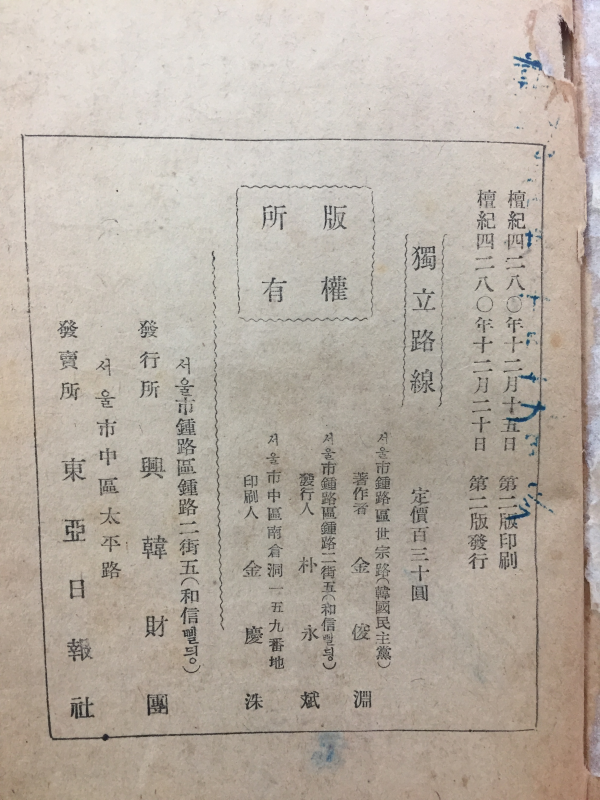 檀紀四二八〇年十二月十五日 第二版印刷
檀紀四二八〇年十二月二十日 第二版發行
獨立路線
定價百三十圓
版權
所有
서울市鍾路區世宗路(韓國民主黨)
著作者 金俊淵
서울市鍾路區鍾路二街五(和信삘듸ᇰ)
發行人 朴永斌
서울市中區南倉洞一五九番地
印刷人 金慶洙
서울市鍾路區鍾路二街五(和信삘듸ᇰ)
發行所 興韓財團
서울市中區太平路
發賣所 東亞日報社